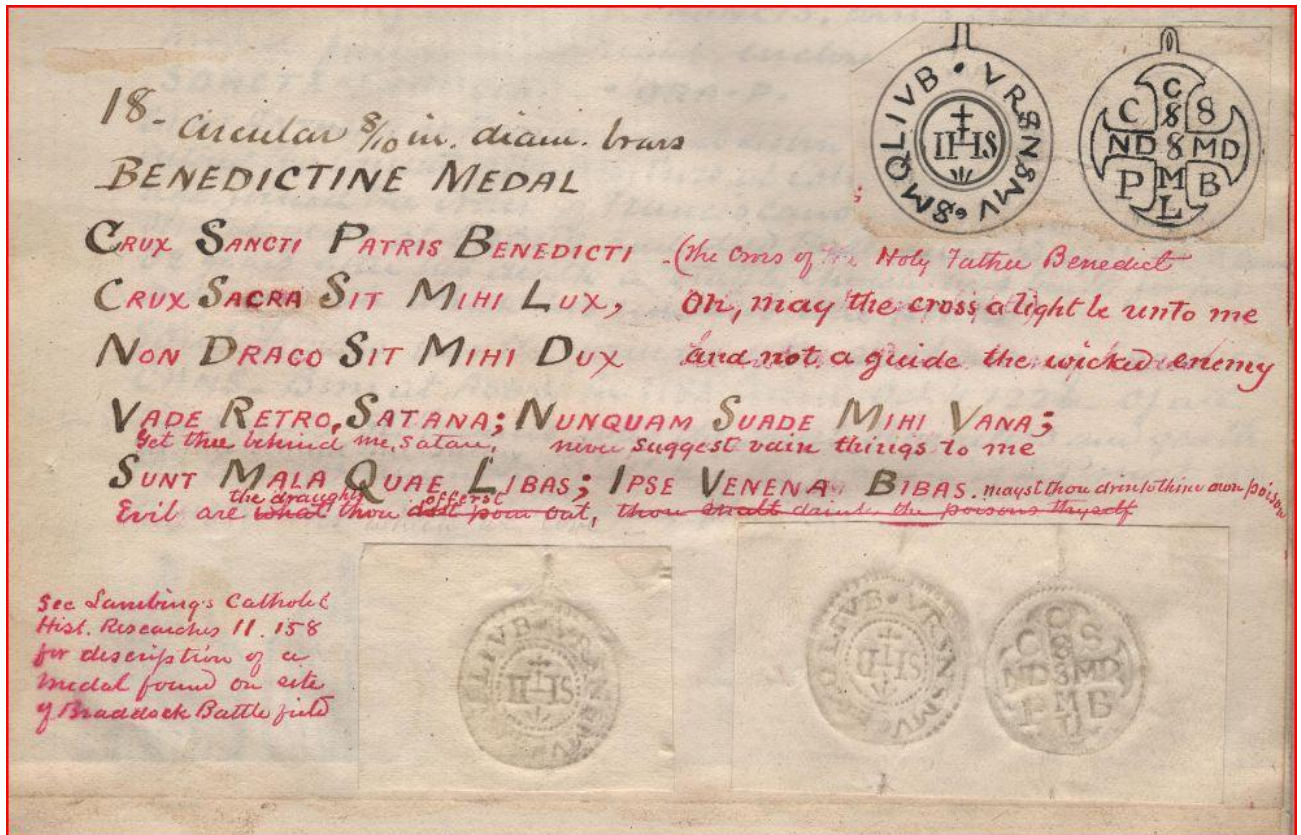 18- Circular 8/10 in. diam. brass
BENEDICTINE MEDAL
CRUX SANCTI PATRIS BENEDICTI - (The Cross of the Holy Father Benedict
CRUX SACRA SIT MIHI LUX, Oh, may the cross a light be unto me
NON DRACO SIT MIHI DUX and not a guide the wicked enemy
VADE RETRO, SATANA; NUNQUAM SUADE MIHI VANA;
Get thee behind me, Satan, never suggest vain things to me
SUNT MALA QUAE LIBAS; IPSE VENENA BIBAS. mayst thou drink thine own poison
the draughts offerst
Evil are what thou dost pour out, thou shalt drink the poisons thyself
See Lambing's Catholic
Hist. Researches II. 158
for description of a
medal found on site
of Braddock Battle field
VRSNSMV • SMQLIVB •
IHS
C S
C S S M L
ND S MD
P B
IHS
C S
ND MD
P B